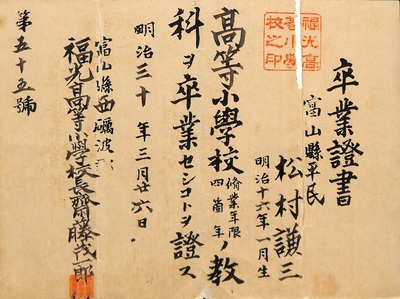 卒業證書
富山縣平民
松村謙三
明治十六年一月生
高等小學校修業年限四箇年ノ教
科ヲ卒業セシコトヲ證ス
明治三十年三月廿六日
富山縣西礪波郡
福光高等小學校長齋藤茂一郎
第五十五號
福光高
等小學
校之印